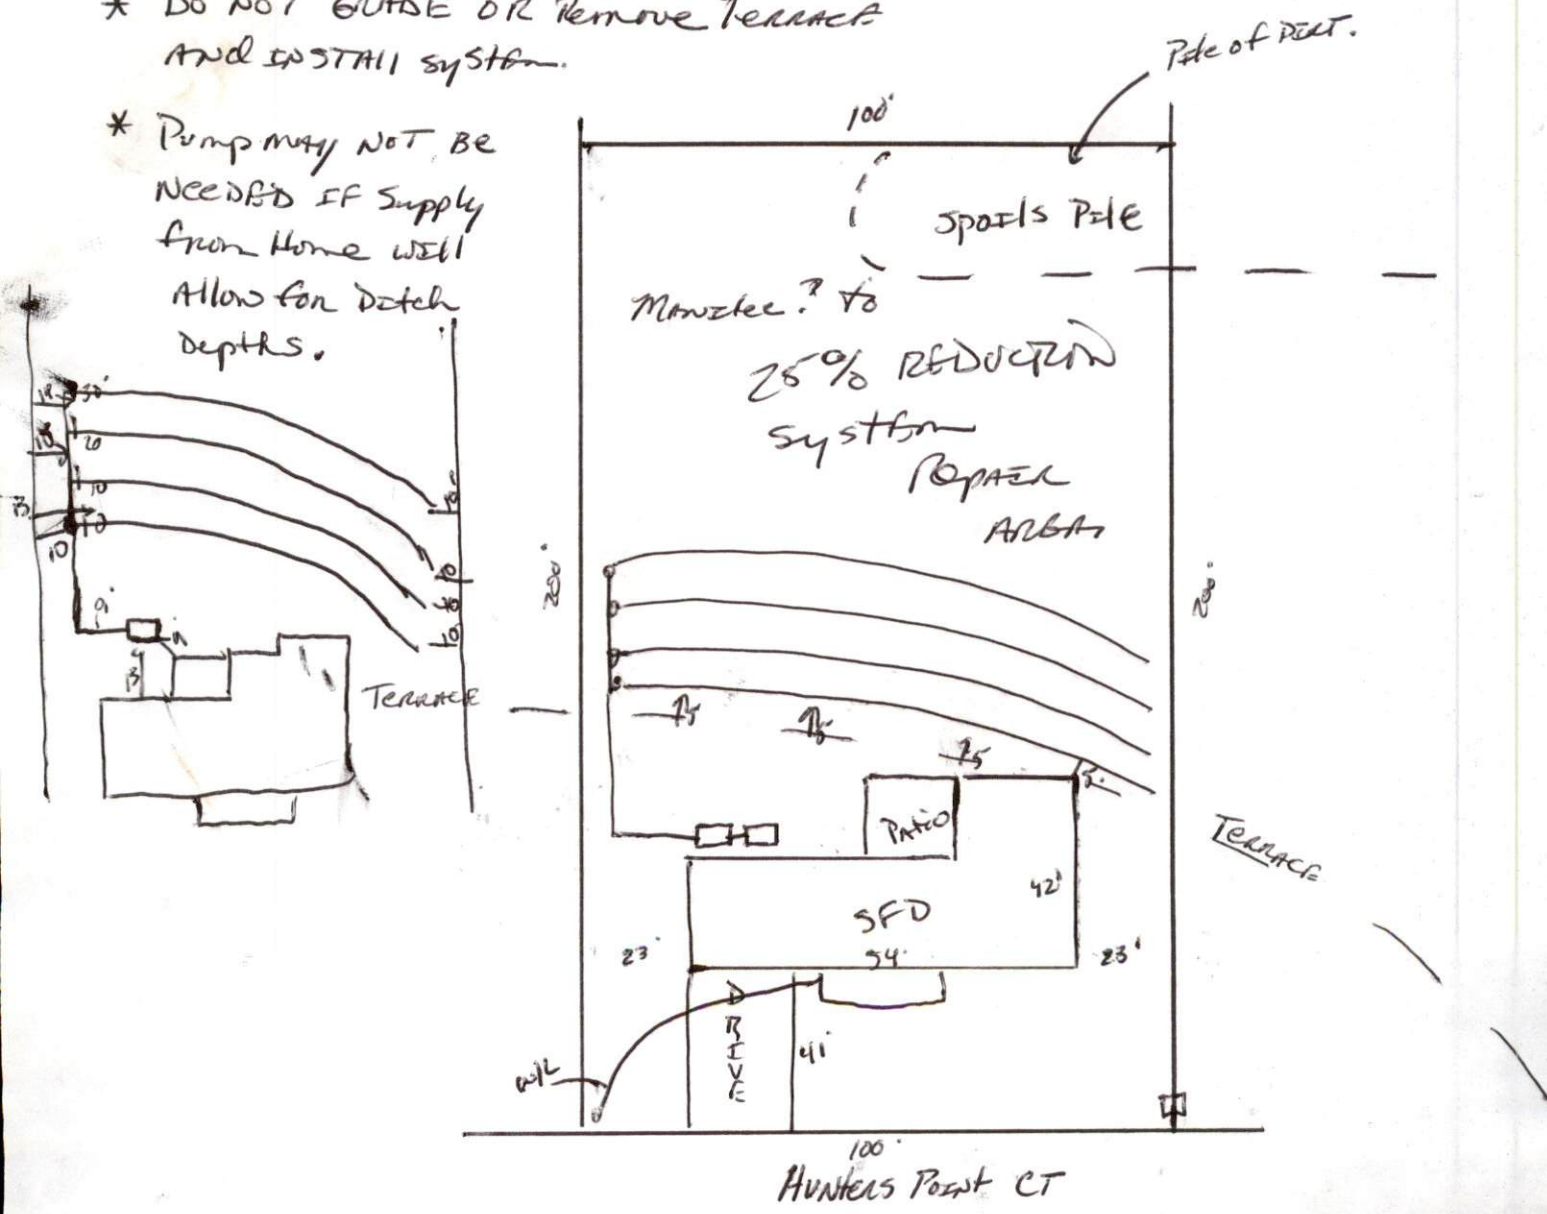 * DO NOT GUIDE OR Remove TERRACE
AND INSTALL System.
* Pump may NOT BE
NEEDED IF Supply
from Home will
Allow for Ditch
Depths.
Pile of DIRT.
100'
Spoils Pile
? to
25% REDUCTION
System
Repair
AREA
30'
20
10
10
10
9'
13
10
10
10
10
TERRACE
200'
200'
75
75
75
5'
Patio
42'
SFD
54'
23'
23'
TERRACE
DRIVE
41'
W/L
100'
HUNTERS POINT CT